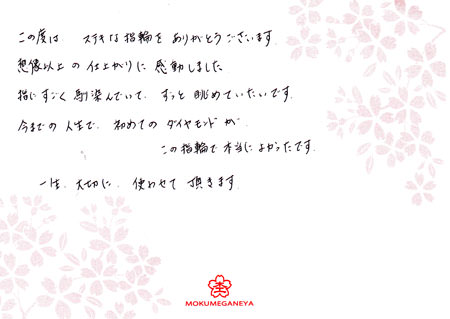 この度は ステキな指輪を ありがとうございます.
想像以上の 仕上がりに 感動しました
指にすごく 馴染んでいて. ずっと 眺めていたいです.
今までの 人生で. 初めての ダイヤモンドが.
この指輪で 本当に よかったです.
一生. 大切に. 使わせて 頂きます.
MOKUMEGANEYA